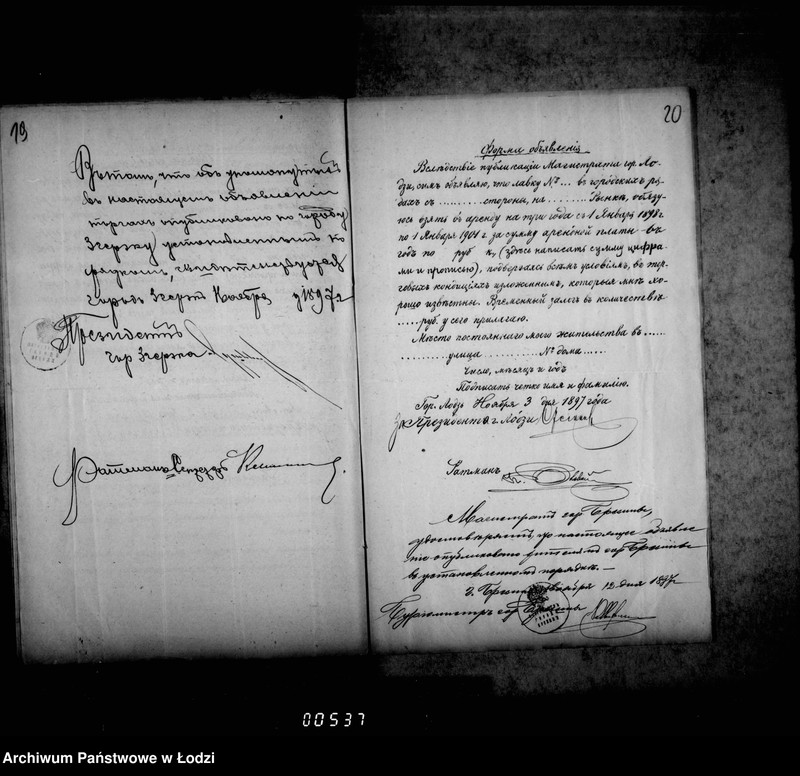 19
что объ
въ настоящемъ объявленіи
торгахъ опубликовано по городу
Згержу установленнымъ по-
городъ Згержъ Ноября 1897 г.
Президентъ
гор. Згержа
20
Форма объявленія
Вслѣдствіе публикаціи Магистрата гор. Ло-
дзи, симъ объявляю, что лавку № ... въ городскихъ ря-
дахъ съ ...... стороны, на ......... Рынкѣ, обязу-
юсь взять въ аренду на три года съ 1 Января 1898 г.
по 1 Января 1901 г. за сумму арендной платы въ
годъ по руб к, (здѣсь написать сумму цифра-
ми и прописью), подвергаясь всѣмъ условіямъ, въ тор-
говыхъ кондиціяхъ изложеннымъ, которыя мнѣ хо-
рошо извѣстны. Временный залогъ въ количествѣ
..... руб. у сего прилагаю.
Мѣсто постояннаго моего жительства въ ......
......... улица ........... № дома .....
Число, мѣсяцъ и годъ
Подписать четко имя и фамилію.
Гор. Лодзь Ноября 3 дня 1897 года
За Президента г. Лодзи
Ратманъ
Магистратъ гор.
удостовѣряетъ, что настоящее Объявле
ніе опубликовано жителямъ гор.
въ установленномъ порядкѣ. —
Ноября 12 дня 1897 г.
Бургомистръ гор.
00537
Archiwum Państwowe w Łodzi